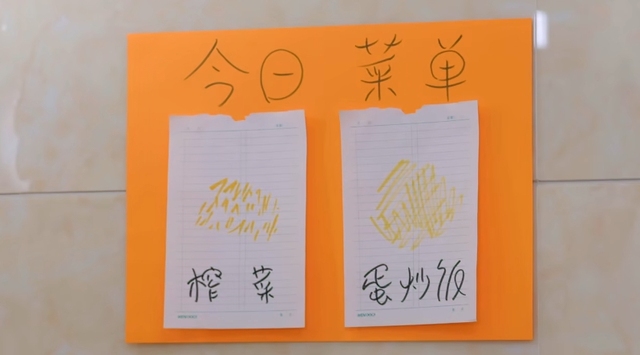 今日菜单
榨菜
蛋炒饭